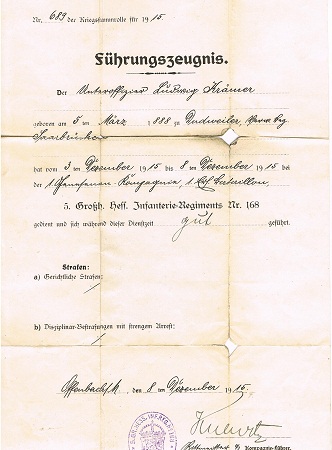 Nr. 689 der Kriegsstammrolle für 1915.
Führungszeugnis.
Der Unteroffizier Ludwig Krämer
geboren am 5ten März 1888 zu Dudweiler,
Saarbrücken
hat vom 3ten Dezember 1915 bis 8ten Dezember 1915 bei
der 1. Kompagnie, 1. Bataillon,
5. Großh. Hess. Infanterie-Regiments Nr. 168
gedient und sich während dieser Dienstzeit gut geführt.
Strafen:
a) Gerichtliche Strafen:
/
b) Disziplinar-Bestrafungen mit strengem Arrest:
/
Offenbach a/M. den 8ten Dezember 1915.
Kompagnie-Führer.